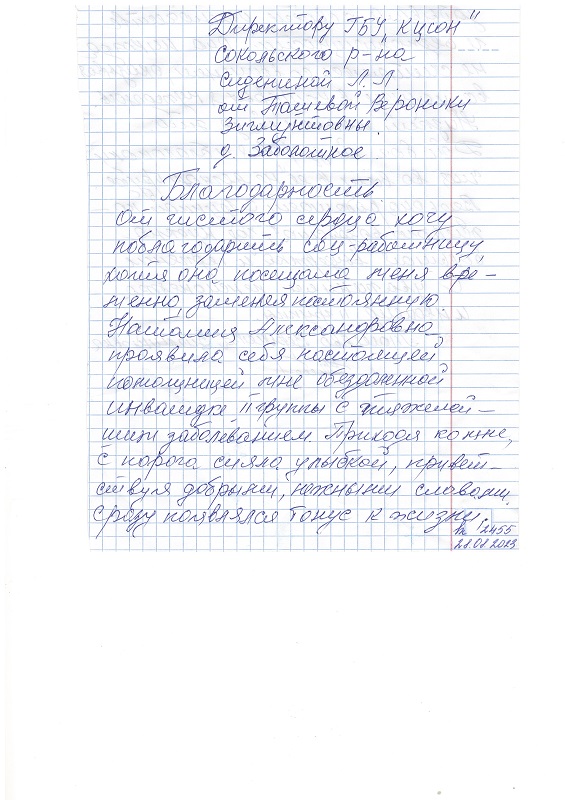 Директору ГБУ „КЦСОН"
Сокольского р-на
Сидениной Л.Л.
от Ташевой Вероники
Зиглинтовны.
д. Заболотное.
Благодарность.
От чистого сердца хочу
поблагодарить соц-работницу,
хотя она посещала меня вре-
менно, заменяя постоянную.
Наталия Александровна
проявила себя настоящей
помощницей мне обездоленной
инвалидке II группы с тяжелей-
шим заболеванием. Приходя ко мне,
с порога сияла улыбкой, привет-
ствуя добрыми, нежными словами.
Сразу появлялся тонус к жизни.
вх 2455
28.08.2023